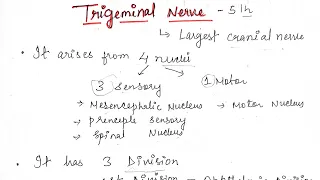 Trigeminal Nerve - 5th
↳ Largest cranial nerve
• It arises from 4 nuclei
3 sensory 1 Motor
→ Mesencephalic Nucleus → Motor Nucleus
→ principle sensory
→ Spinal Nucleus
• It has 3 Division
1st Division = Ophthalmic Division